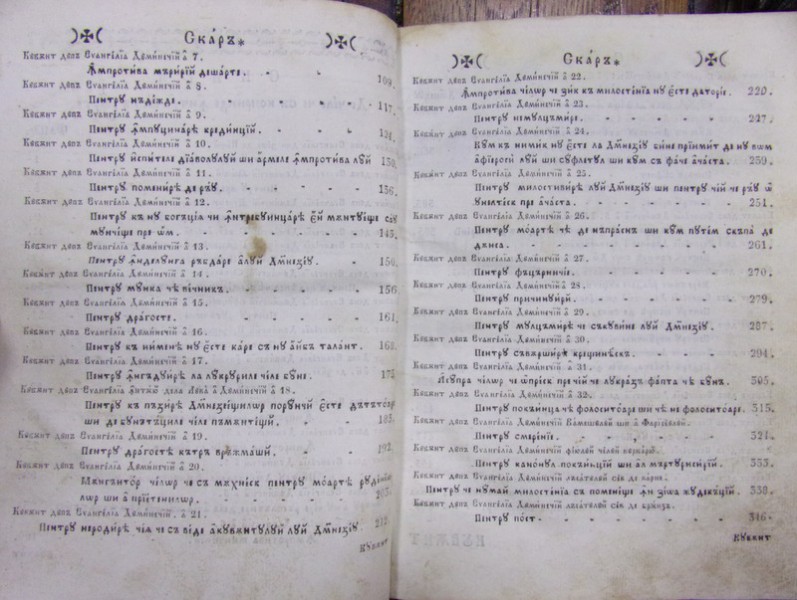 Скаръ*
Кꙋвѫнт дꙋпъ Еѵангелїа Дꙋминечїй а҃ 7.
Ꙟпротива мъририй дешарте. 109.
Кꙋвѫнт дꙋпъ Еѵангелїа Дꙋминечїй а҃ 8.
Пентрꙋ нъдѣжде. 117.
Кꙋвѫнт дꙋпъ Еѵангелїа Дꙋминечїй а҃ 9.
Пентрꙋ ꙟпꙋцинаре крединцїй.
Кꙋвѫнт дꙋпъ Еѵангелїа Дꙋминечїй а҃ 10.
Пентрꙋ испителе дїаволꙋлꙋй ши армеле ꙟпротива лꙋй
Кꙋвѫнт дꙋпъ Еѵангелїа Дꙋминечїй а҃ 11.
Пентрꙋ поменирѣ де ръꙋ. 136.
Кꙋвѫнт дꙋпъ Еѵангелїа Дꙋминечїй а҃ 12.
Пентрꙋ къ нꙋ богъцїа чи
мꙋнчіще пре ѡм. 143.
Кꙋвѫнт дꙋпъ Еѵангелїа Дꙋминечїй а҃ 13.
Пентрꙋ ꙟделꙋнга ръбдаре алꙋй Дꙋмнезеꙋ. 150.
Кꙋвѫнт дꙋпъ Еѵангелїа Дꙋминечїй а҃ 14.
Пентрꙋ мꙋнка чѣ вѣчникъ. 156
Кꙋвѫнт дꙋпъ Еѵангелїа Дꙋминечїй а҃ 15.
Пентрꙋ драгосте. 161.
Кꙋвѫнт дꙋпъ Еѵангелїа Дꙋминечїй а҃ 16.
Пентрꙋ къ нимене нꙋ есте каре съ нꙋ айбъ талант.
Кꙋвѫнт дꙋпъ Еѵангелїа Дꙋминечїй а҃ 17.
Пентрꙋ ꙟгъдꙋирѣ ла лꙋкрꙋриле челе бꙋне.
Кꙋвѫнт дꙋпъ Еѵангелїа ꙟтѫю дела Лꙋка а Дꙋминечїй а҃ 18.
Пентрꙋ къ пъзирѣ порꙋнчй есте дътътоаре
ши де бꙋнътъциле челе пъмѫнтещй.
Кꙋвѫнт дꙋпъ Еѵангелїа Дꙋминечїй а҃ 19.
Пентрꙋ драгостѣ кътръ врѫжмашй. 192.
Кꙋвѫнт дꙋпъ Еѵангелїа Дꙋминечїй а҃ 20.
Мѫнгъитор челѡр че съ мѫхнеск пентрꙋ моартѣ рꙋденїилѡр
лѡр ши а прїетенилѡр.
Кꙋвѫнт дꙋпъ Еѵангелїа Дꙋминечїй а҃ 21.
Пентрꙋ неродирѣ чѣа че съ веде а кꙋвѫнтꙋлꙋй лꙋй Дꙋмнезеꙋ.
Кꙋвѫнт
Скаръ*
Кꙋвѫнт дꙋпъ Еѵангелїа Дꙋминечїй а҃ 22.
Ꙟпротива челѡр че зик къ милостенїа нꙋ есте даторїе. 220.
Кꙋвѫнт дꙋпъ Еѵангелїа Дꙋминечїй а҃ 23.
Пентрꙋ немꙋлцъмире. 227.
Кꙋвѫнт дꙋпъ Еѵангелїа Дꙋминечїй а҃ 24.
Кꙋм къ нимик нꙋ есте ла Дꙋмнезеꙋ бине приимит де нꙋ вѡм
афиеросй лꙋй ши сꙋфлетꙋл ши кꙋм съ фаче ачаста. 239.
Кꙋвѫнт дꙋпъ Еѵангелїа Дꙋминечїй а҃ 25.
Пентрꙋ милостивирѣ лꙋй Дꙋмнезеꙋ ши пентрꙋ чей че рѫꙋ
пре ачаста. 251.
Кꙋвѫнт дꙋпъ Еѵангелїа Дꙋминечїй а҃ 26.
Пентрꙋ моартѣ чѣ де нъпраснъ ши кꙋм пꙋтем скъпа де
дѫнса. 261.
Кꙋвѫнт дꙋпъ Еѵангелїа Дꙋминечїй а҃ 27.
Пентрꙋ фъцърничїе. 270.
Кꙋвѫнт дꙋпъ Еѵангелїа Дꙋминечїй а҃ 28.
Пентрꙋ причинꙋирй. 279.
Кꙋвѫнт дꙋпъ Еѵангелїа Дꙋминечїй а҃ 29.
Пентрꙋ мꙋлцъмирѣ че съ кꙋвине лꙋй Дꙋмнезеꙋ. 287.
Кꙋвѫнт дꙋпъ Еѵангелїа Дꙋминечїй а҃ 30.
Пентрꙋ съвърширѣ крещинѣскъ. 294.
Кꙋвѫнт дꙋпъ Еѵангелїа Дꙋминечїй а҃ 31.
Асꙋпра челѡр че ѡпреск пре чей че лꙋкрѣзъ фапта чѣ бꙋнъ. 305.
Кꙋвѫнт дꙋпъ Еѵангелїа Дꙋминечїй а҃ 32.
Пентрꙋ покъинца чѣ фолоситоаре ши чѣ нефолоситоаре. 315.
Кꙋвѫнт дꙋпъ Еѵангелїа Вамешꙋлꙋй ши а Фарисеꙋлꙋй.
Пентрꙋ смеренїе. 324.
Кꙋвѫнт дꙋпъ Еѵангелїа Дꙋминечїй фїюлꙋй челꙋй кꙋрварй.
Пентрꙋ канонꙋл покъинцїй ши ал мъртꙋрисирїй. 333.
Кꙋвѫнт дꙋпъ Еѵангелїа Дꙋминечїй лъсатꙋлꙋй сек де карне.
Пентрꙋ че нꙋмай милостенїа съ поменеще ꙟ зиоа жꙋдекъцїй. 338.
Кꙋвѫнт дꙋпъ Еѵангелїа Дꙋминечїй лъсатꙋлꙋй сек де брѫнзъ.
Пентрꙋ пост. 346.
Кꙋвѫнт